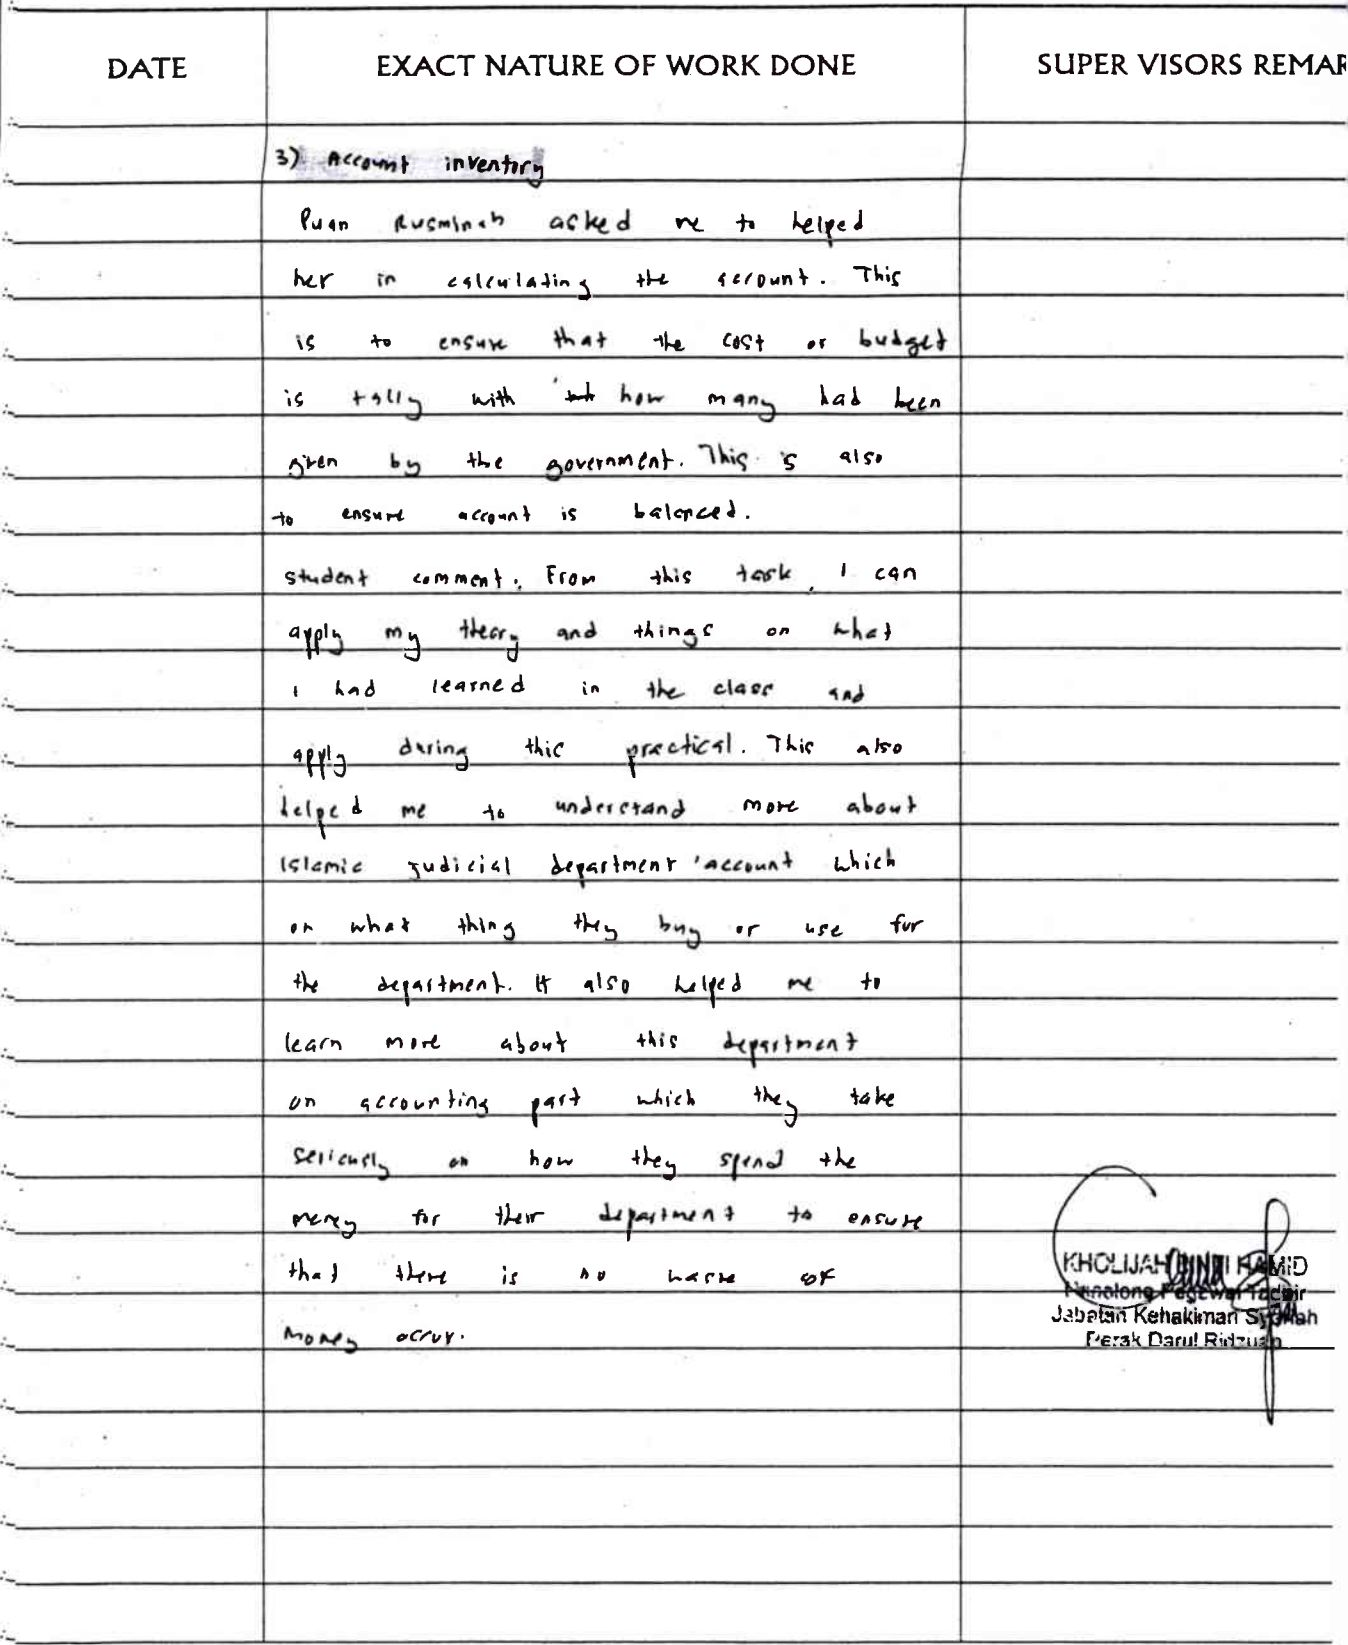 DATE
EXACT NATURE OF WORK DONE
SUPER VISORS REMAR
3) Account inventory
Puan Rusminah asked me to helped
her in calculating the account. This
is to ensure that the cost or budget
is tally with how many had been
given by the government. This is also
to ensure account is balanced.
student comment: From this task, I can
apply my theory and things on what
I had learned in the class and
apply during this practical. This also
helped me to understand more about
Islamic Judicial department 'account which
on what thing they buy or use for
the department. It also helped me to
learn more about this department
on accounting part which they take
seriously on how they spend the
money for their department to ensure
that there is no waste of
money occur.
KHOLIJAH BINTI HAMID
Penolong Pegawai Tadbir
Jabatan Kehakiman Syariah
Perak Darul Ridzuan